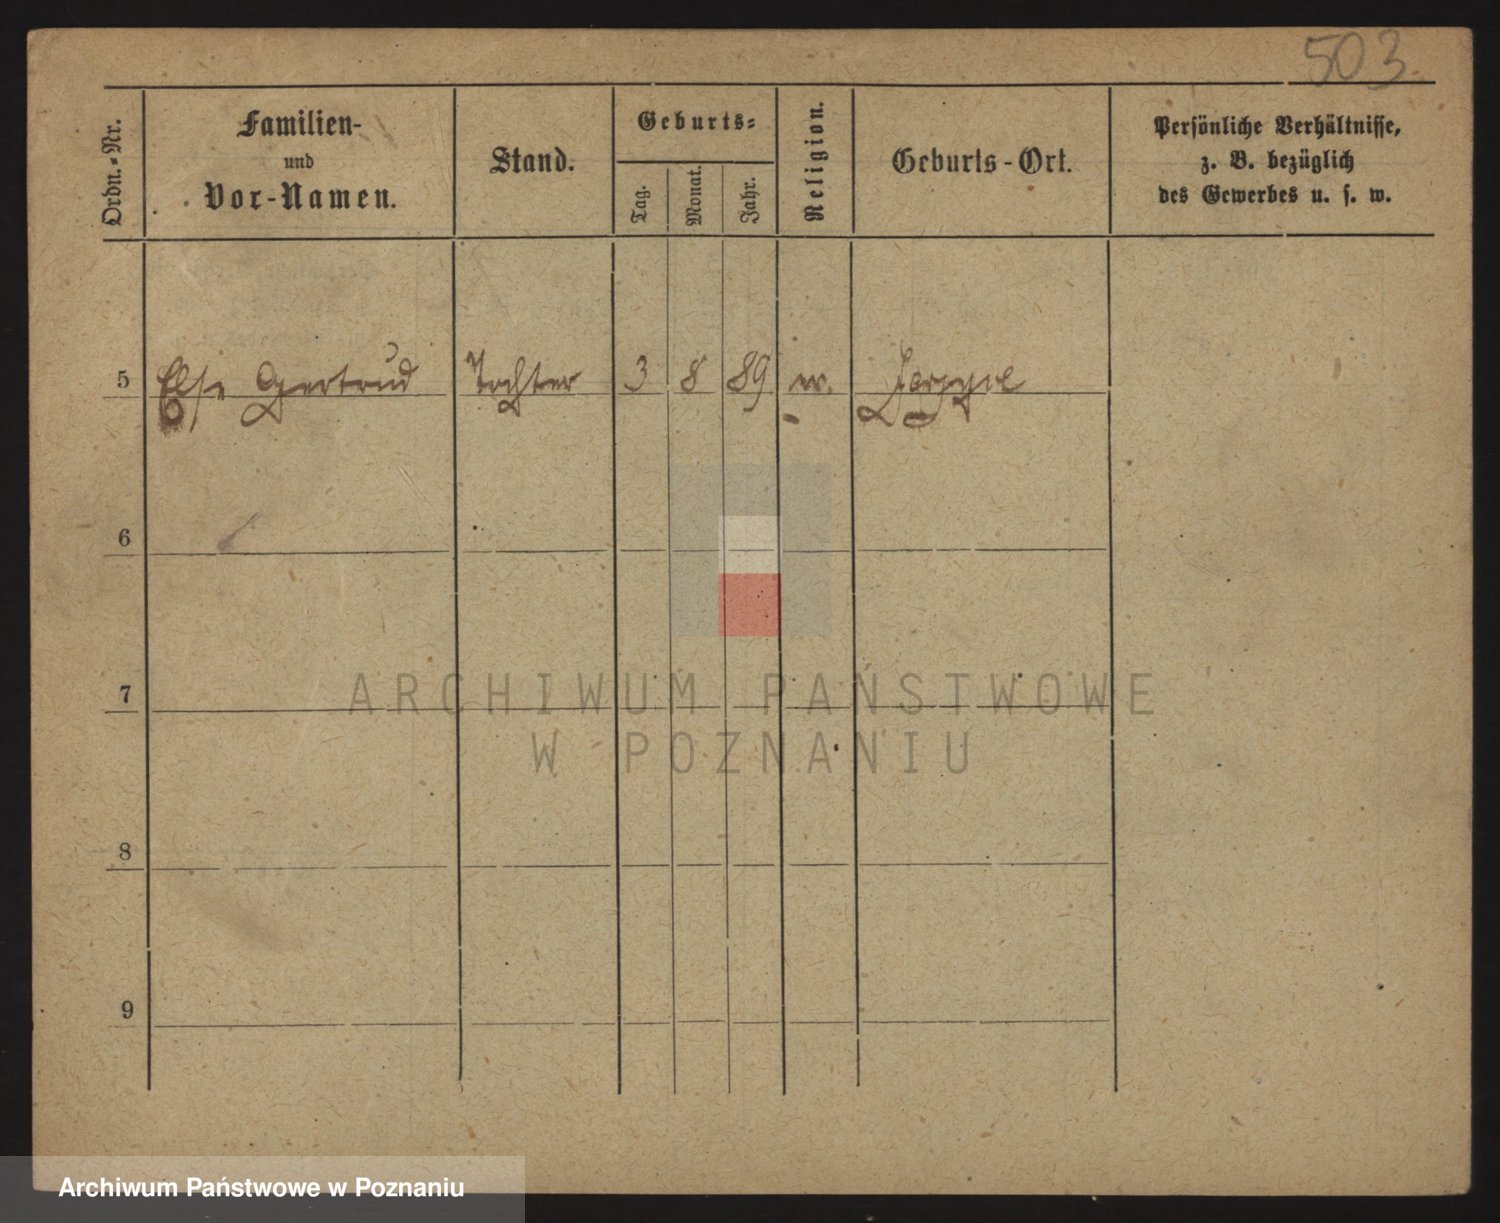 503.
Ordn.-Nr.
Familien-
und
Vor-Namen.
Stand.
Geburts-
Tag.
Monat.
Jahr.
Religion.
Geburts-Ort.
Persönliche Verhältnisse,
z. B. bezüglich
des Gewerbes u. s. w.
5 Else Gertrud Tochter 3 8 89
6
7
8
9
ARCHIWUM PAŃSTWOWE
W POZNANIU
Archiwum Państwowe w Poznaniu